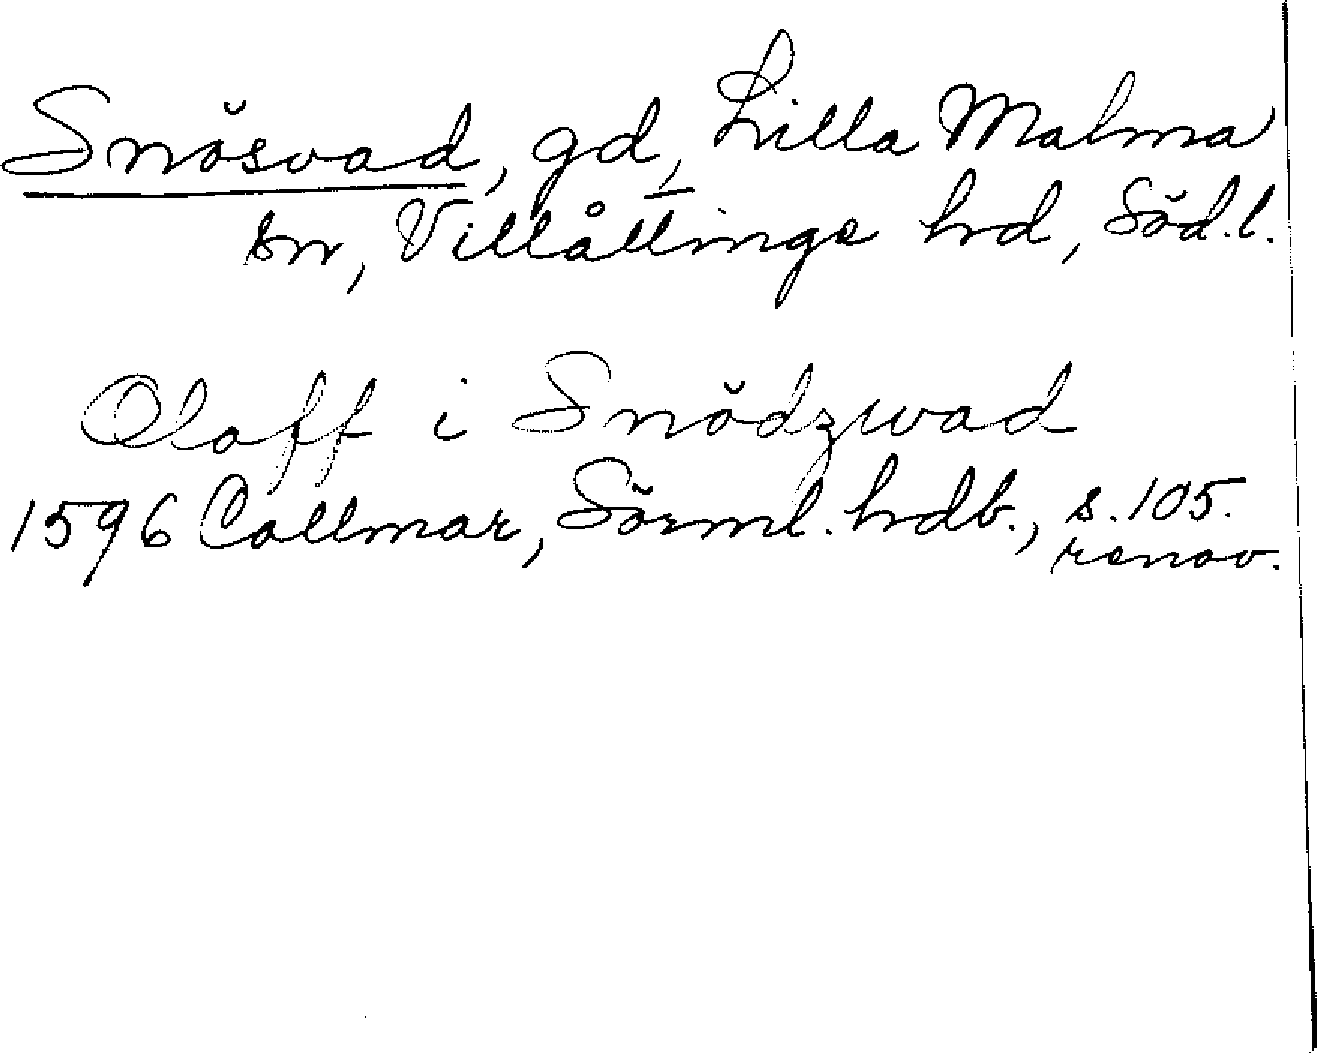 Snösvad, gd, Lilla Malma
sn, Villåttinge hrd, Söd.l.
Olaff i Snödzwad
1596 Collmar, Sörml. hrdb., s. 105.
renov.